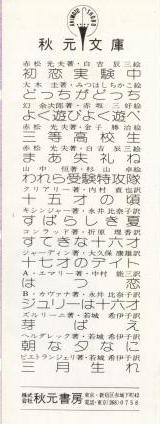 秋元文庫
赤松光夫著・白吉辰三絵
初恋実験中
大木圭著・みつはしちかこ絵
どっちがどっち
幻余次郎著・赤坂三好絵
よく遊びよく遊べ
赤松光夫著・金子勝治絵
三等高校生
赤松光夫著・白吉辰三絵
まあ失礼ね
山中恒著・杉山卓絵
われら受験特攻隊
クリアリー著・内村直也訳
十五才の頃
キシンジャー著・永井比奈子訳
すばらしき夏
コンラッド著・折原理香訳
すてきな十六才
ジャーディン著・大久保康雄訳
十七才のデイト
A・エマリー著・中村能三訳
はつ恋
B・カヴァナ著・永井比奈子訳
ジュリーは十六才
ズルリーニ著・若城希伊子訳
芽ばえ
ヘルデレック著・若城希伊子訳
朝な夕なに
ピエトランジェリ著・若城希伊子訳
三月生れ
株式会社 秋元書房
東京・新宿区市谷城下町42
電話・東京(268)0758